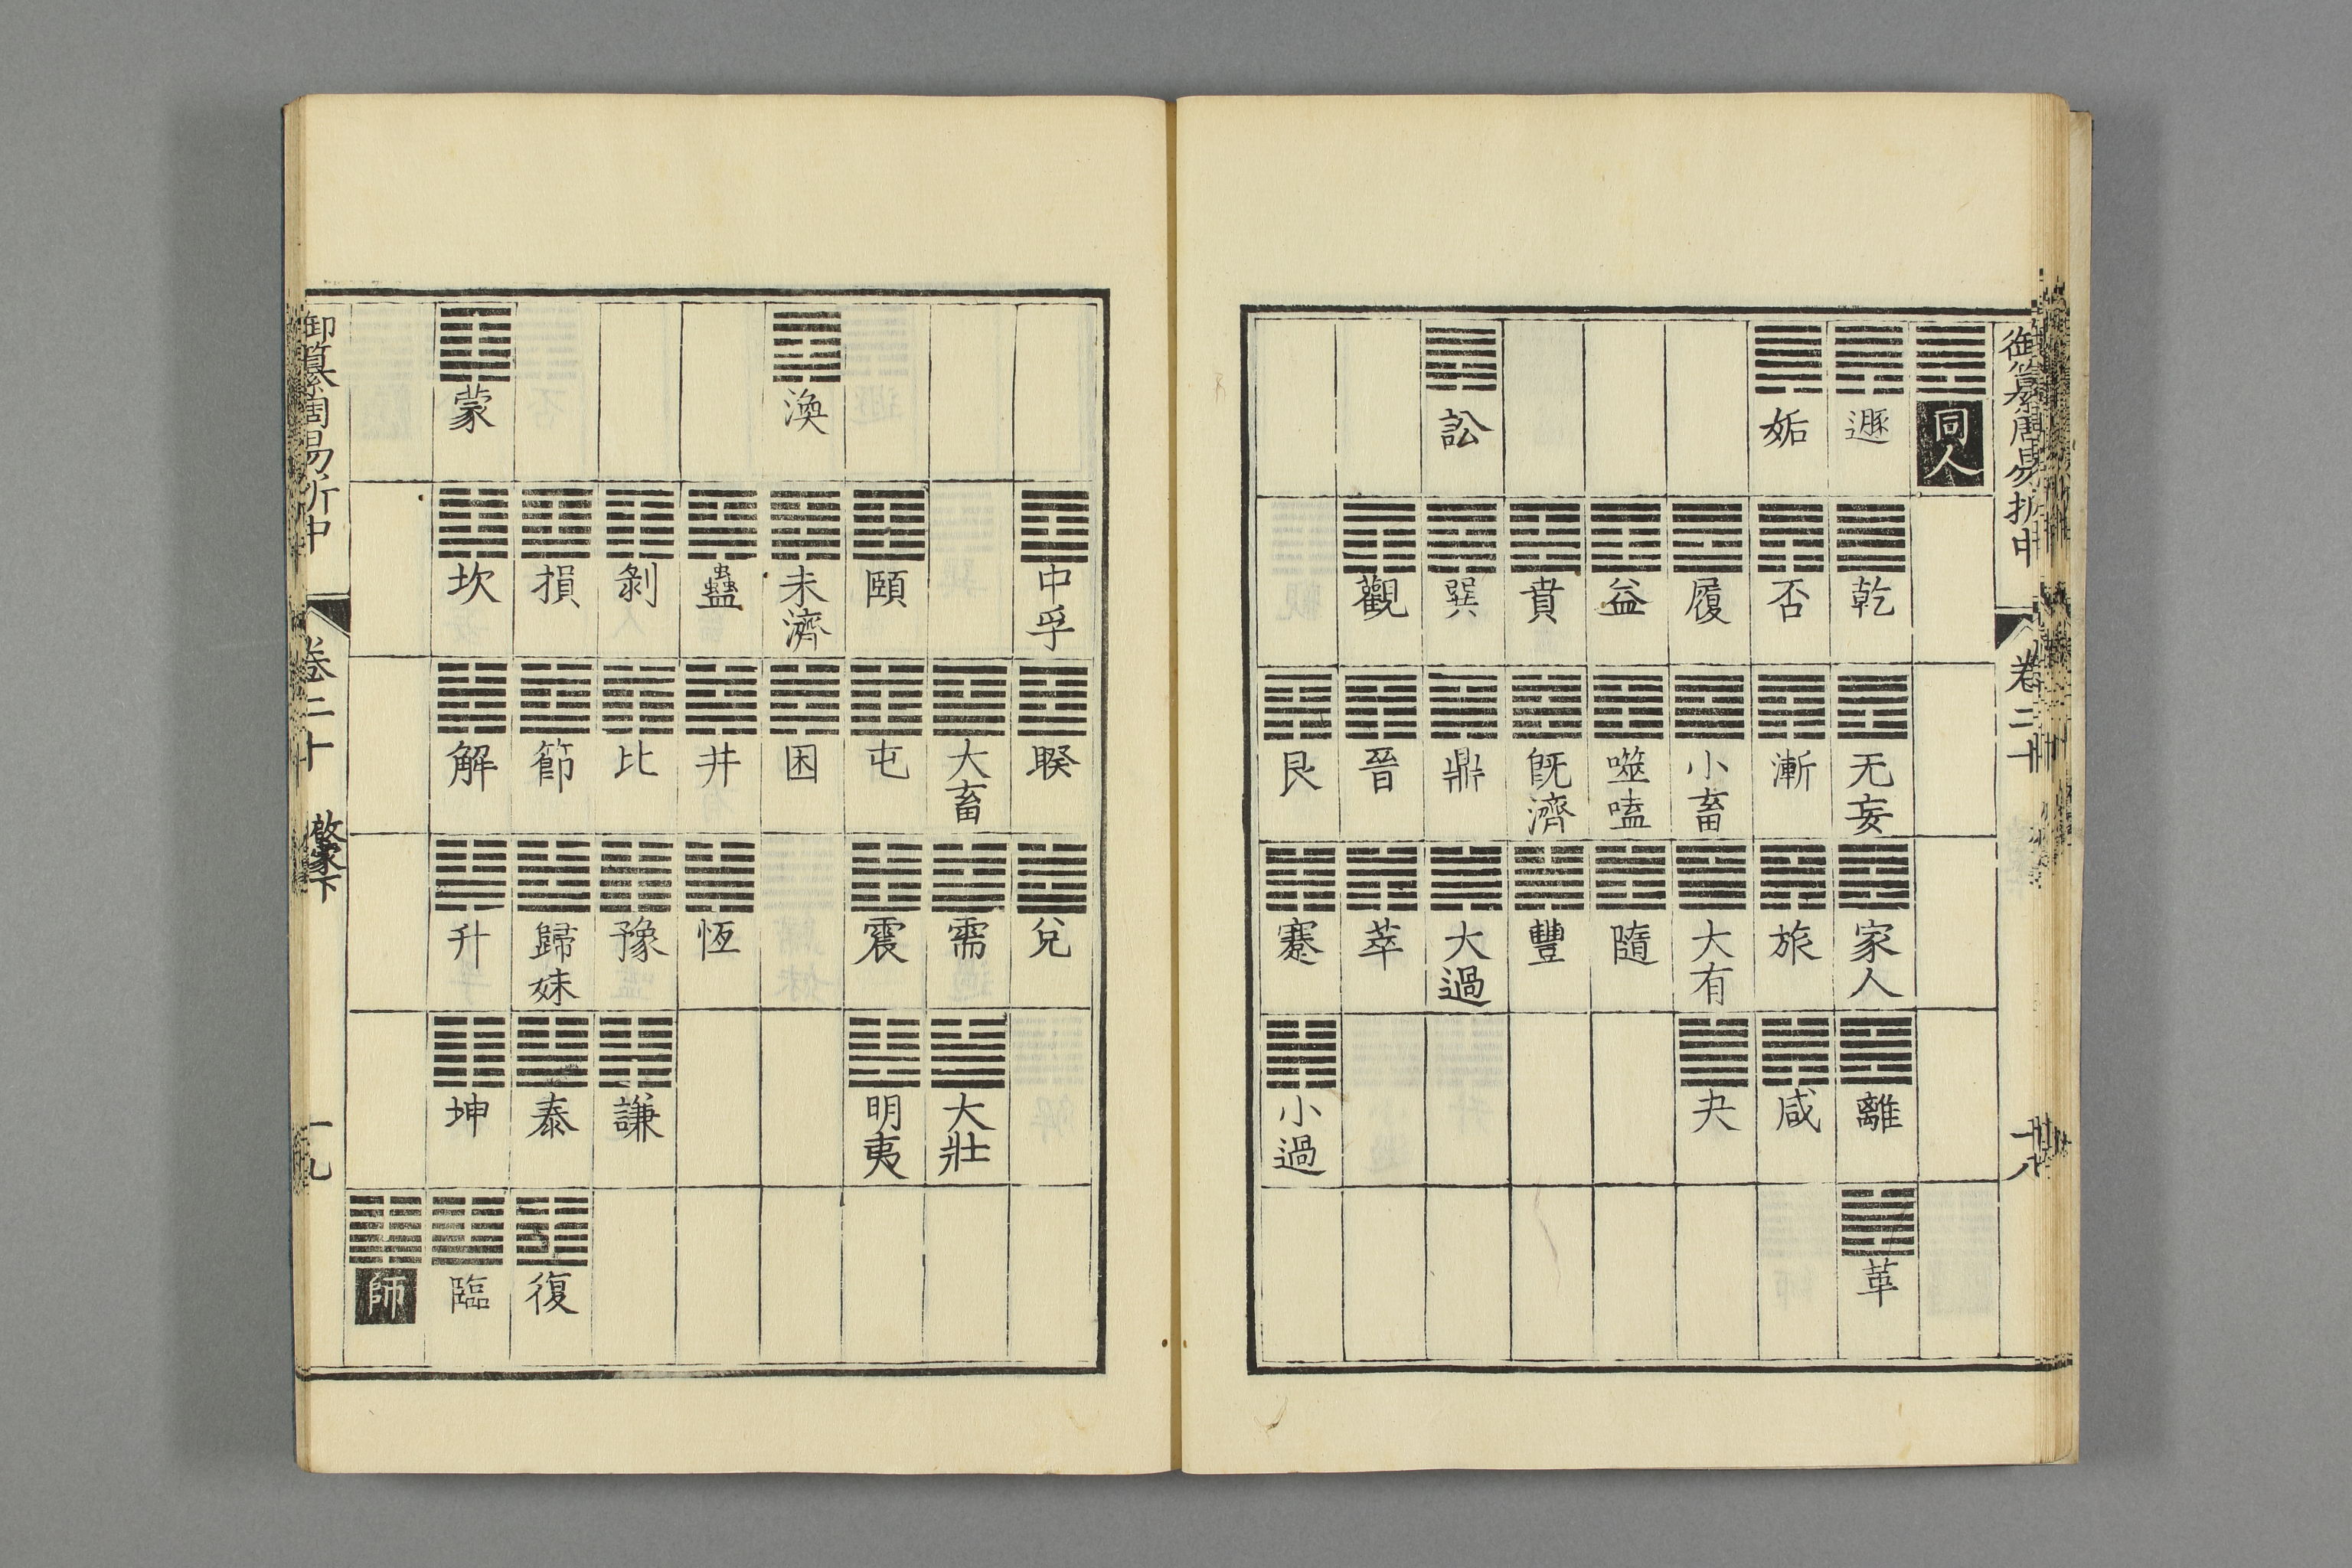 御纂周易折中
卷二十
十八
同人
遯 乾 无妄 家人 離 革
姤 否 漸 旅 咸
履 小畜 大有 夬
益 噬嗑 隨
賁 既濟 豐
訟 巽 鼎 大過
觀 晉 萃
艮 蹇 小過
中孚 睽 兌
大畜 需 大壯
頤 屯 震 明夷
渙 未濟 困
蠱 井 恆
剝 比 豫 謙
損 節 歸妹 泰 復
蒙 坎 解 升 坤 臨
師
御纂周易折中
卷二十
啟蒙下
十九